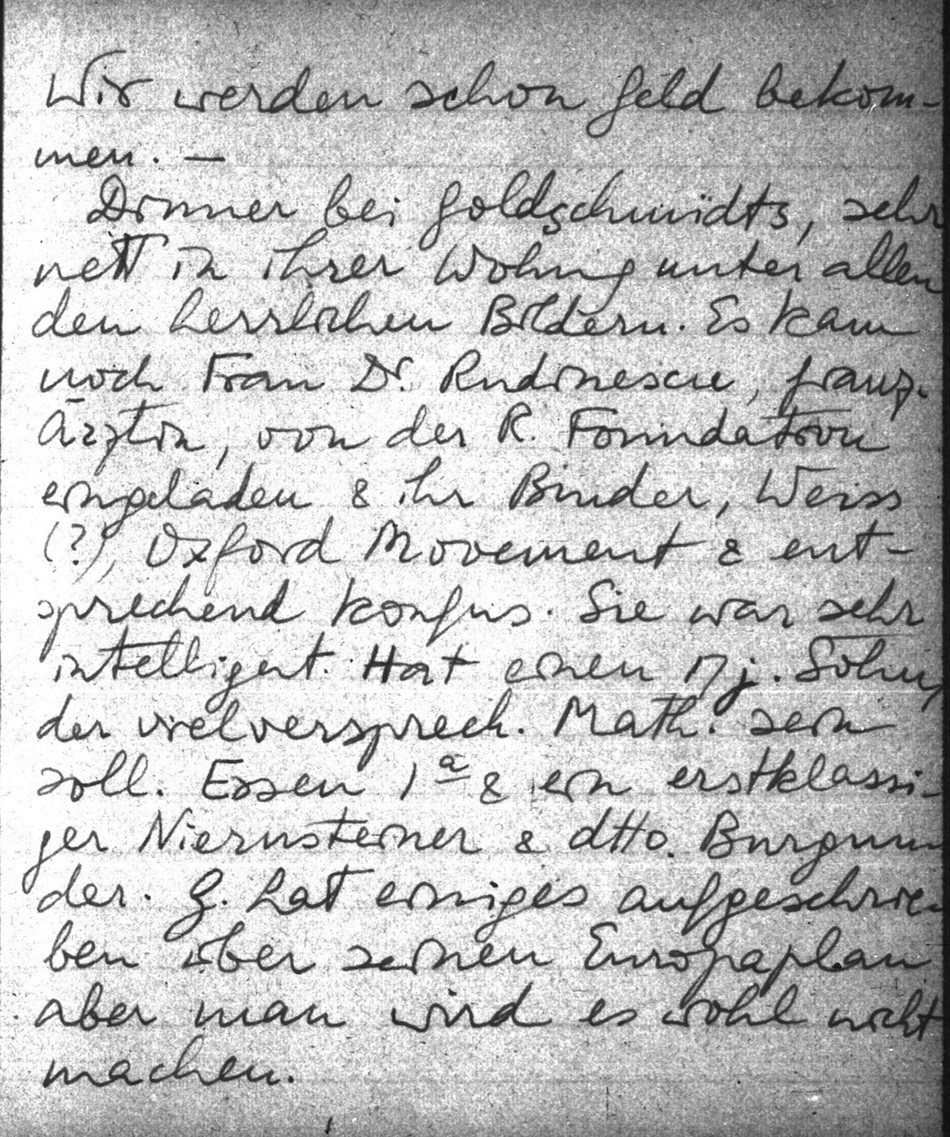 Wir werden schon Geld bekom-
men. —
Dinner bei Goldschmidts, sehr
nett in ihrer Wohng unter allen
den herrlichen Bildern. Es kam
noch Frau Dr. Rudinescu, franz.
Ärztin, von der R. Foundation
eingeladen & ihr Bruder, Weiss
(?), Oxford Movement & ent-
sprechend konfus. Sie war sehr
intelligent. Hat einen 17j. Sohn,
der vielversprech. Math. sein
soll. Essen 1a & ein erstklassi-
ger Niersteiner & dtto. Burgun-
der. G. hat einiges aufgeschrie-
ben über seinen Europaplan
aber man wird es wohl nicht
machen.